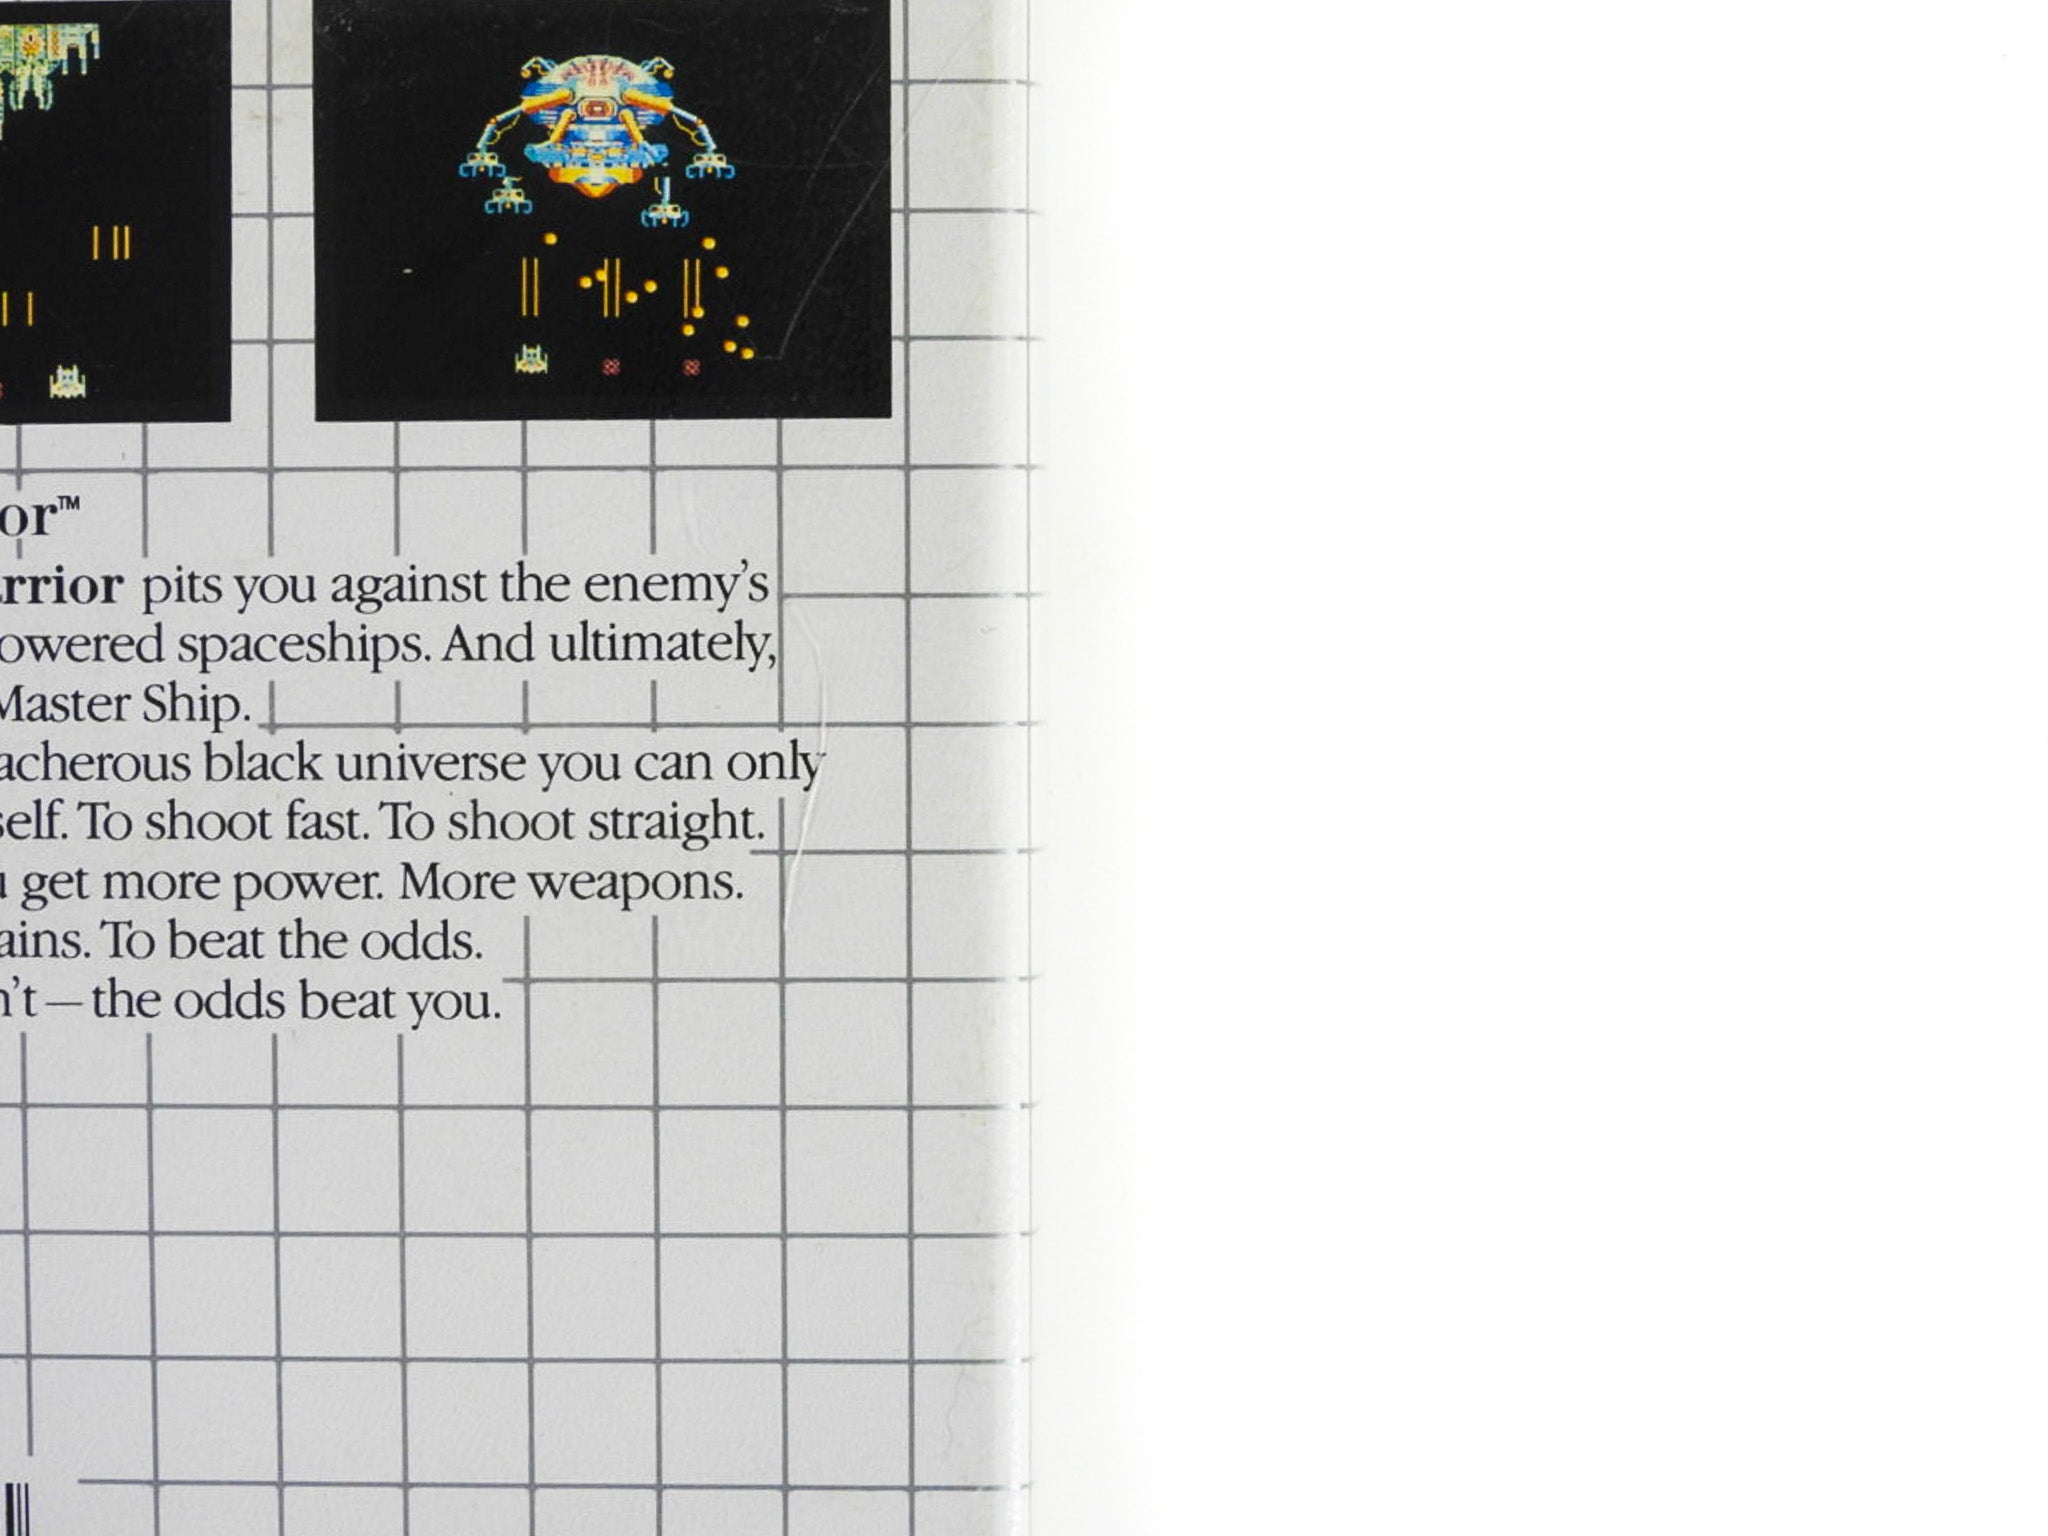 or™
rrior pits you against the enemy's
owered spaceships. And ultimately,
Master Ship.
acherous black universe you can only
self. To shoot fast. To shoot straight.
u get more power. More weapons.
ains. To beat the odds.
n't—the odds beat you.